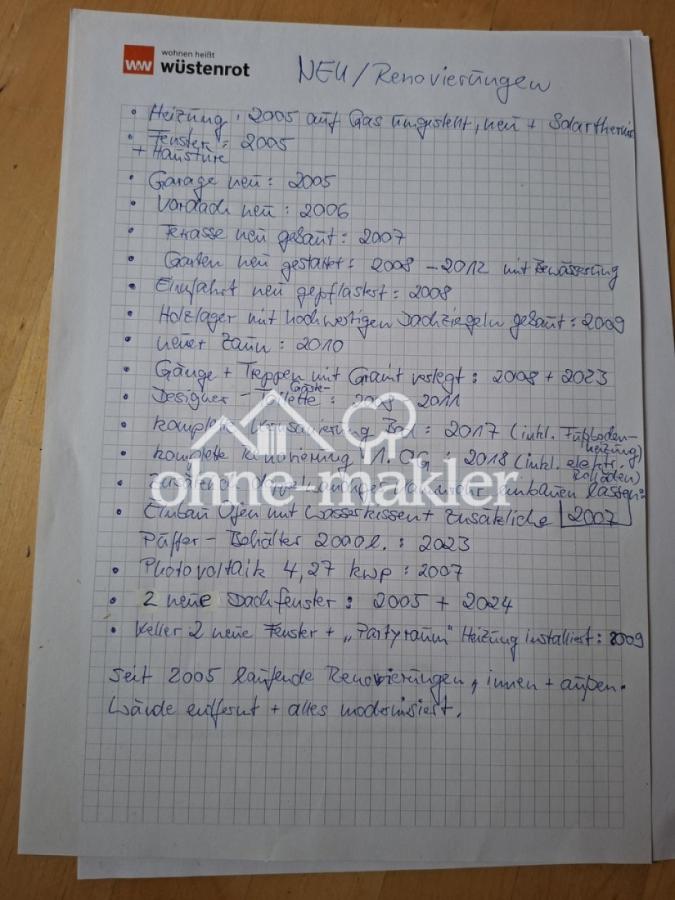 wohnen heißt
wüstenrot
NEU / Renovierungen
• Heizung: 2005 auf Gas umgestellt, neu + Solarthermie
• Fenster: 2005
+ Haustüre
• Garage neu: 2005
• Vordach neu: 2006
• Terrasse neu gebaut: 2007
• Garten neu gestaltet: 2008 – 2012 mit Bewässerung
• Einfahrt neu gepflastert: 2008
• Holzlager mit hochwertigen Dachziegeln gebaut: 2009
• neuer Zaun: 2010
• Gänge + Treppen mit Granit verlegt: 2008 + 2023
• Designer – Gäste-Toilette: 2011
• komplette Bad: 2017 (inkl. Fußbodenheizung)
• komplette Renovierung 1. OG: 2018 (inkl. elektr. Rolläden)
• einbauen lassen:
2007
• Einbau Ofen mit Wasserkissen + zusätzliche
Puffer – Behälter 2000 l.: 2023
• Photovoltaik 4,27 kwp: 2007
• 2 neue Dachfenster: 2005 + 2024
• Keller 2 neue Fenster + „Partyraum" Heizung installiert: 2009
Seit 2005 laufende Renovierungen, innen + außen.
Wände entfernt + alles modernisiert.
ohne-makler